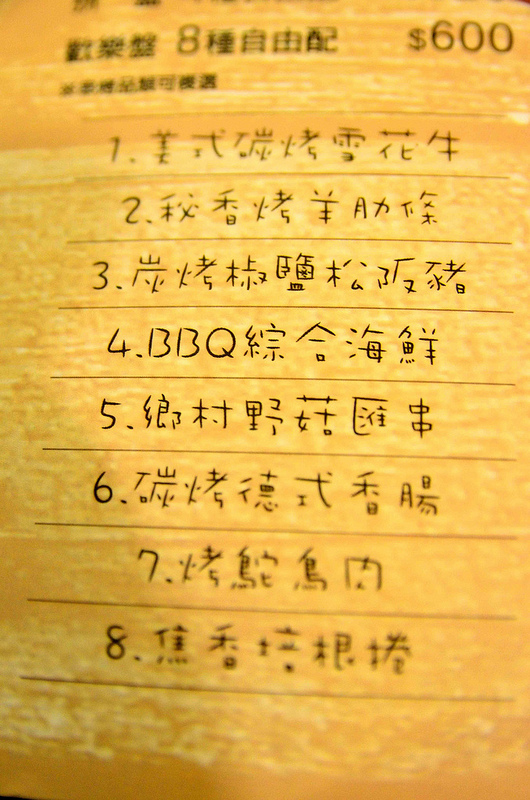 歡樂盤 8種自由配 $600
※串烤品類可複選
1.美式碳烤雪花牛
2.秘香烤羊肋條
3.炭烤椒鹽松阪豬
4.BBQ綜合海鮮
5.鄉村野菇匯串
6.碳烤德式香腸
7.烤鴕鳥肉
8.焦香培根捲